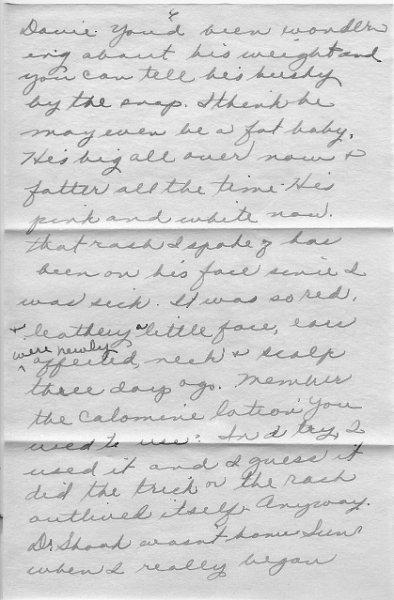 4
Davie. You'd been wonder
ing about his weight and
you can tell he's husky
by the snap. I think he
may even be a fat baby.
His big all over now &
fatter all the time. His
pink and white now.
that rash I spoke of has
been on his face since I
was sick. It was so red,
& leathery a little face, ears
were newly
affected, neck & scalp
three days ago. Member
the Calomine lotion you
used to use? In a try, I
used it and I guess it
did the trick or the rash
outlived itself. Anyway.
Dr. wasn't home Sun.
when I really began